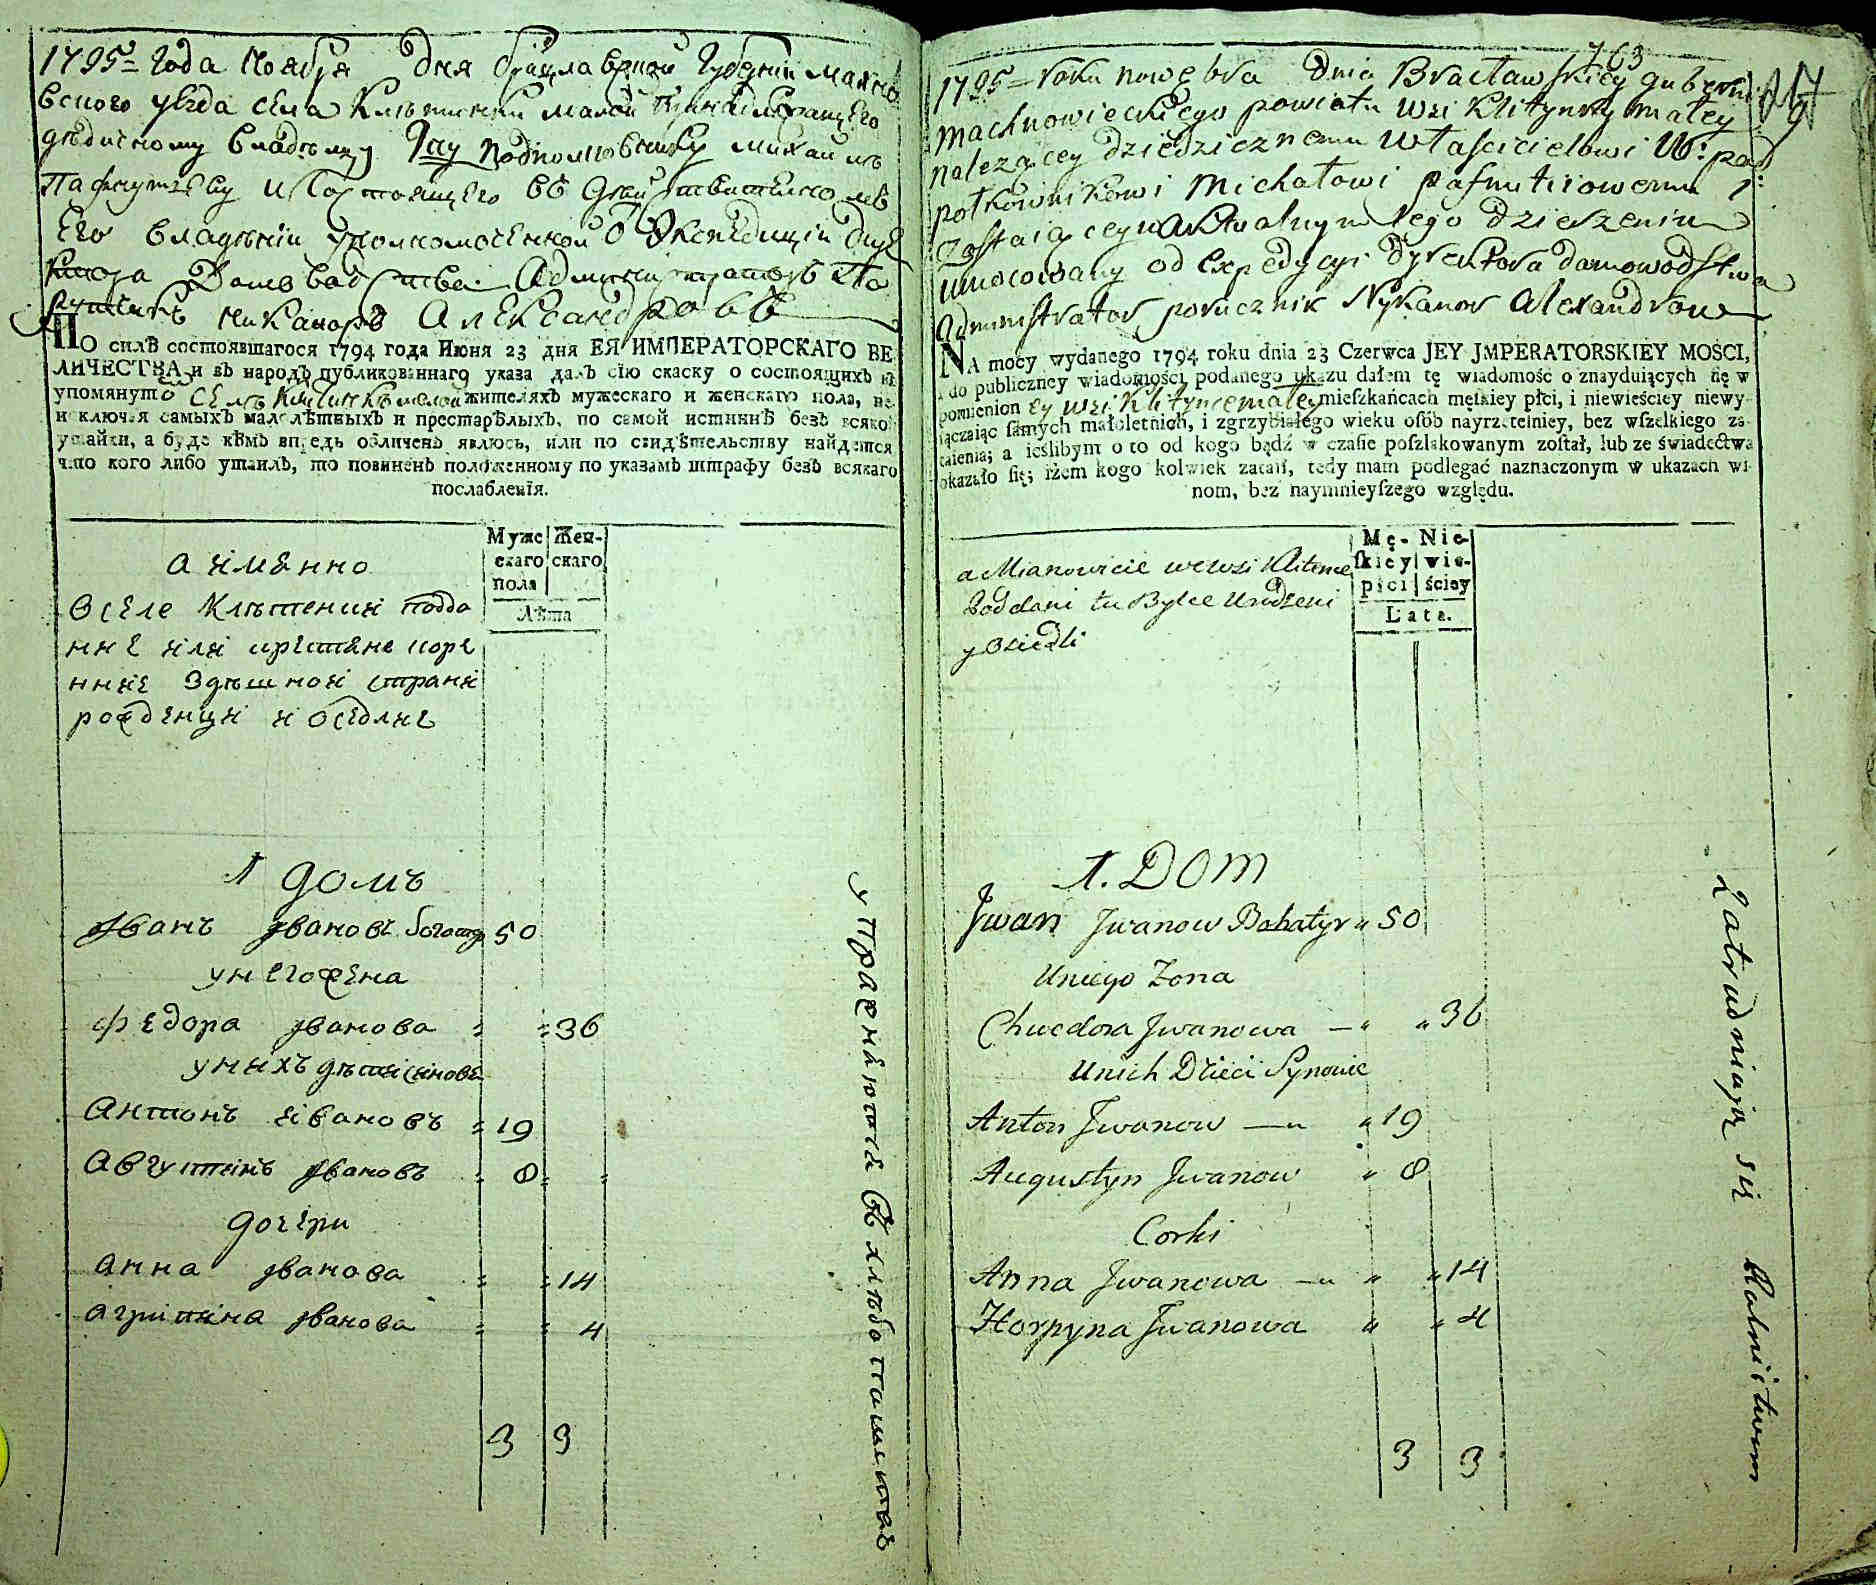 1795 = Года Ноября Дня брацлавской Губерніи Махно
вского уезда села Клитинки малой принадлежащего
дѣдичному владѣлцу Гну подполковнику Михаилѣ
Пафнутьеву и состоящего въ действительномъ
Его владѣніи уполномоченной От Экспедиціи Дире
ктора Домоводства Администраторъ По
ручикъ Никаноръ Александровъ
По силѣ состоявшагося 1794 года Июня 23 дня ЕЯ ИМПЕРАТОРСКАГО ВЕ
ЛИЧЕСТВА и въ народъ публикованнаго указа далъ сію скаску о состоящихъ въ
упомянутой селѣ Клитинкѣ малой жителяхъ мужескаго и женскаго пола, не
исключая самыхъ малолѣтныхъ и престарѣлыхъ, по самой истиннѣ безъ всякой
утайки, а буде кѣмъ впредь обличенъ явлюсь, или по свидѣтельству найдется
что кого либо утаилъ, то повиненъ положенному по указамъ штрафу безъ всякаго
послабленія.
Муже Жен-
скаго скаго
пола
Лѣта
а іменно
В селе Клѣтенки подда
нне илі крестяне коре
нние здѣшной страни
рожденци и оседлие
1 домъ
Іванъ Івановъ богатир 50
у него жена
Федора Іванова = = 36
у нихъ дѣти синове
Антонъ Івановъ = 19
Августинъ Івановъ = 8 =
дочери
Анна Іванова = = 14
Агрипина Іванова = = 4
3 3
упражняются въ хлѣбопашествѣ
763
1795 = roku nowębra Dnia Bracławskiey gubernii
machnowieckiego powiatu wsi Klitynky małey
należącey dziedzicznemu właścicielowi W: pod
połkownikowi Michałowi pafnutiiowemu
zostaiącey w aktualnym iego dzierżeniu
umocowany od Expedycyi dyrektora domowodstwa
administrator porucznik Nykanor alexandrow
NA mocy wydanego 1794 roku dnia 23 Czerwca JEY JMPERATORSKIEY MOŚCI,
i do publiczney wiadomości podanego ukazu dałem tę wiadomość o znayduiących ſię w
pomienioney wsi Klityncemałey mieszkańcach męſkiey płci, i niewieściey niewy-
łączaiąc ſamych małoletnich, i zgrzybiałego wieku osób nayrzetelniey, bez wſzelkiego za-
taienia; a ieślibym o to od kogo bądź w czaſie poſzlakowanym zoſtał, lub ze świadectwa
okazało ſię; iżem kogo kolwiek zataił, tedy mam podlegać naznaczonym w ukazach wi-
nom, bez naymnieyſzego względu.
Mę- Nie-
ſkiey wie-
płci ściey
Lata.
a Mianowicie we wsi Klitence
Poddani tu Bylce Urodzeni
y Osiedli
1. DOM
Jwan Jwanow Bohatyr „ 50
Uniego Żona
Chwedora Jwanowa — „ „ 36
Unich Dzieci Synowie
Anton Jwanow — „ „ 19
Augustyn Jwanow „ 8
Corki
Anna Jwanowa — „ „ „ 14
Horpyna Jwanowa „ „ 4
3 3
Zatrudniają się Rolnictwem